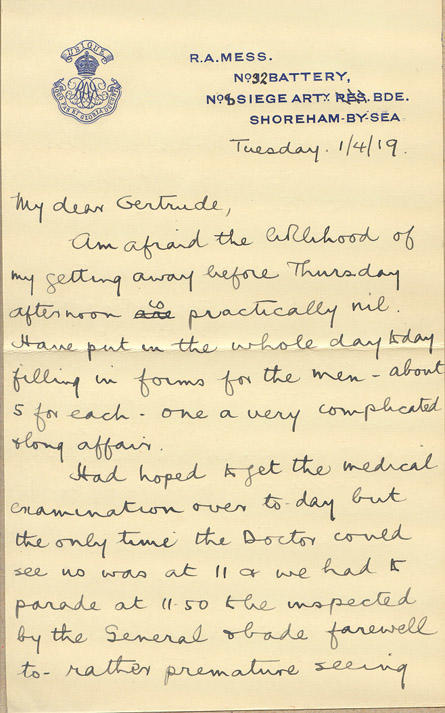 UBIQUE
QUO FAS ET GLORIA DUCUNT
R.A. MESS.
No 32 BATTERY,
No 8 SIEGE ARTY RES. BDE.
SHOREHAM-BY-SEA
Tuesday. 1/4/19.
My dear Gertrude,
Am afraid the liklihood of
my getting away before Thursday
afternoon are is practically nil.
Have put in the whole day today
filling in forms for the men - about
5 for each - one a very complicated
& long affair.
Had hoped to get the medical
examination over to-day but
the only time the Doctor could
see us was at 11 & we had to
parade at 11-50 to be inspected
by the General & bade farewell
to - rather premature seeing